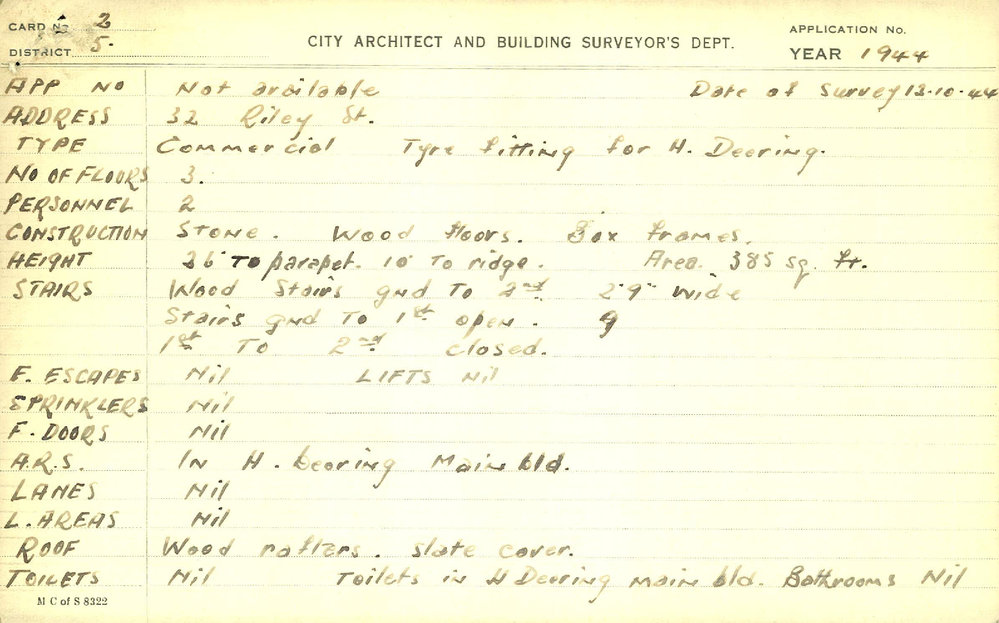 CARD No 2
DISTRICT 5.
CITY ARCHITECT AND BUILDING SURVEYOR'S DEPT.
APPLICATION No.
YEAR 1944
APP NO Not available Date of Survey 13-10-44
ADDRESS 32 Riley St.
TYPE Commercial Tyre fitting for H. Deering.
NO OF FLOORS 3.
PERSONNEL 2
CONSTRUCTION Stone. Wood floors. Box frames.
HEIGHT 26' To parapet. 10' To ridge. Area. 385 sq. ft.
STAIRS Wood Stairs gnd To 2nd 2'9" wide
Stairs gnd To 1st open.
1st To 2nd closed.
F. ESCAPES Nil LIFTS Nil
SPRINKLERS Nil
F. DOORS Nil
A.R.S. In H. Deering Main bld.
LANES Nil
L. AREAS Nil
ROOF Wood rafters. Slate cover.
TOILETS Nil Toilets in H Deering main bld. Bathrooms Nil
M C of S 8322